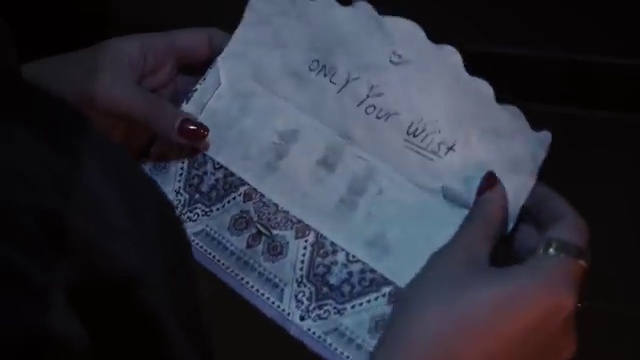 ONLY Your Wrist